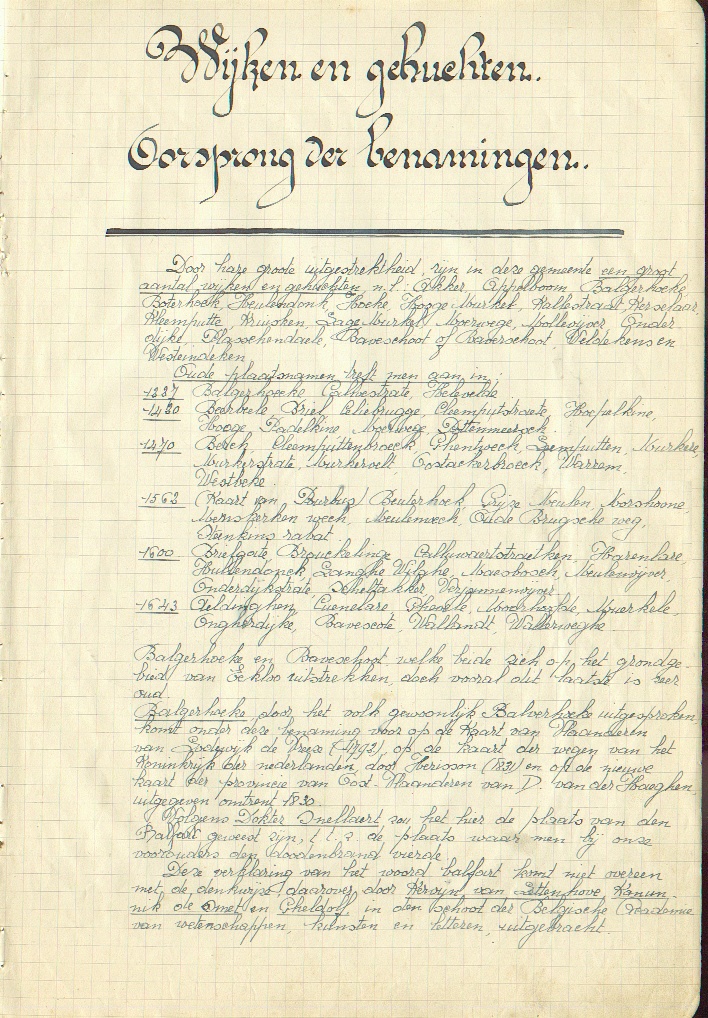 Wijken en gehuchten.
Oorsprong der benamingen.
Door hare groote uitgestrektheid, zijn in deze gemeente een groot
aantal wijken en gehuchten, n.l.: Akker, Appelboom, Balgerhoeke,
Boterhoek, Heulendonk, Hoeke, Hooge Murkel, Hallestraat, Kerselaar,
Kleemputte, Kruipken, Lage Murkel, Moerwege, Mollevijver, Onder
dijke, Plasschendaele, Baveschoot of Baverschoot, Veldekens en
Westeindeken.
Oude plaatsnamen treft men aan in:
-1227 Balgerhoeke, Calvestrate, Helevelde
-1420 Beerbeele, Briel, Eliebrugge, Cleemputstraete, Hoepelkine,
Hooge, Padelkine, Moerwege, Pottenmeersch.
-1470 Berch, Cleemputtenbroeck, Ghentweech, Leemputten, Murkere,
Murkerstrate, Murkervelt, Oostackerbroeck, Warrem,
Westbeke.
-1562 (Kaart van Pourbus) Beuterhoek, Meulen,
weech, Meulenweck, Oude Brugsche weg,
rabat
-1600 Briefgote, Brouckelinge, Harenlare,
Hullendonck, Langhe Wilghe, Maesbosch, Meulenvijver,
Onderdijkstrate, Schelfakker,
-1643 Aeldinghen, Cuenelare, Moerhoofde, Muerkele
Onghendijke, Bavescote, Wallandt, Watterweghe
Balgerhoeke en Baveschoot, welke beide zich op het grondge-
bied van Eekloo uitstrekken, doch vooral dit laatste is zeer
oud.
Balgerhoeke, door het volk gewoonlijk Balverhoeke uitgesproken,
komt onder deze benaming voor op de Kaart van Vlaanderen
van Lodewijk de Vreese (1792), op de kaart der wegen van het
Koninkrijk der nederlanden, door Herisson (1831) en op de nieuwe
kaart der provincie van Oost-Vlaanderen van D. van der Haeghen,
uitgegeven omtrent 1830.
Volgens Dokter Snellaert zou het hier de plaats van den
Balfart geweest zijn, t. t. z. de plaats waar men bij onze
voorouders den doodenbrand vierde.
Deze verklaring van het woord balfart komt niet overeen
met de denkwijze daarover door Kervyn van Lettenhove, Kanun-
nik de Smet en Gheldolf, in den schoot der Belgische Academie
van wetenschappen, kunsten en letteren, uitgebracht.